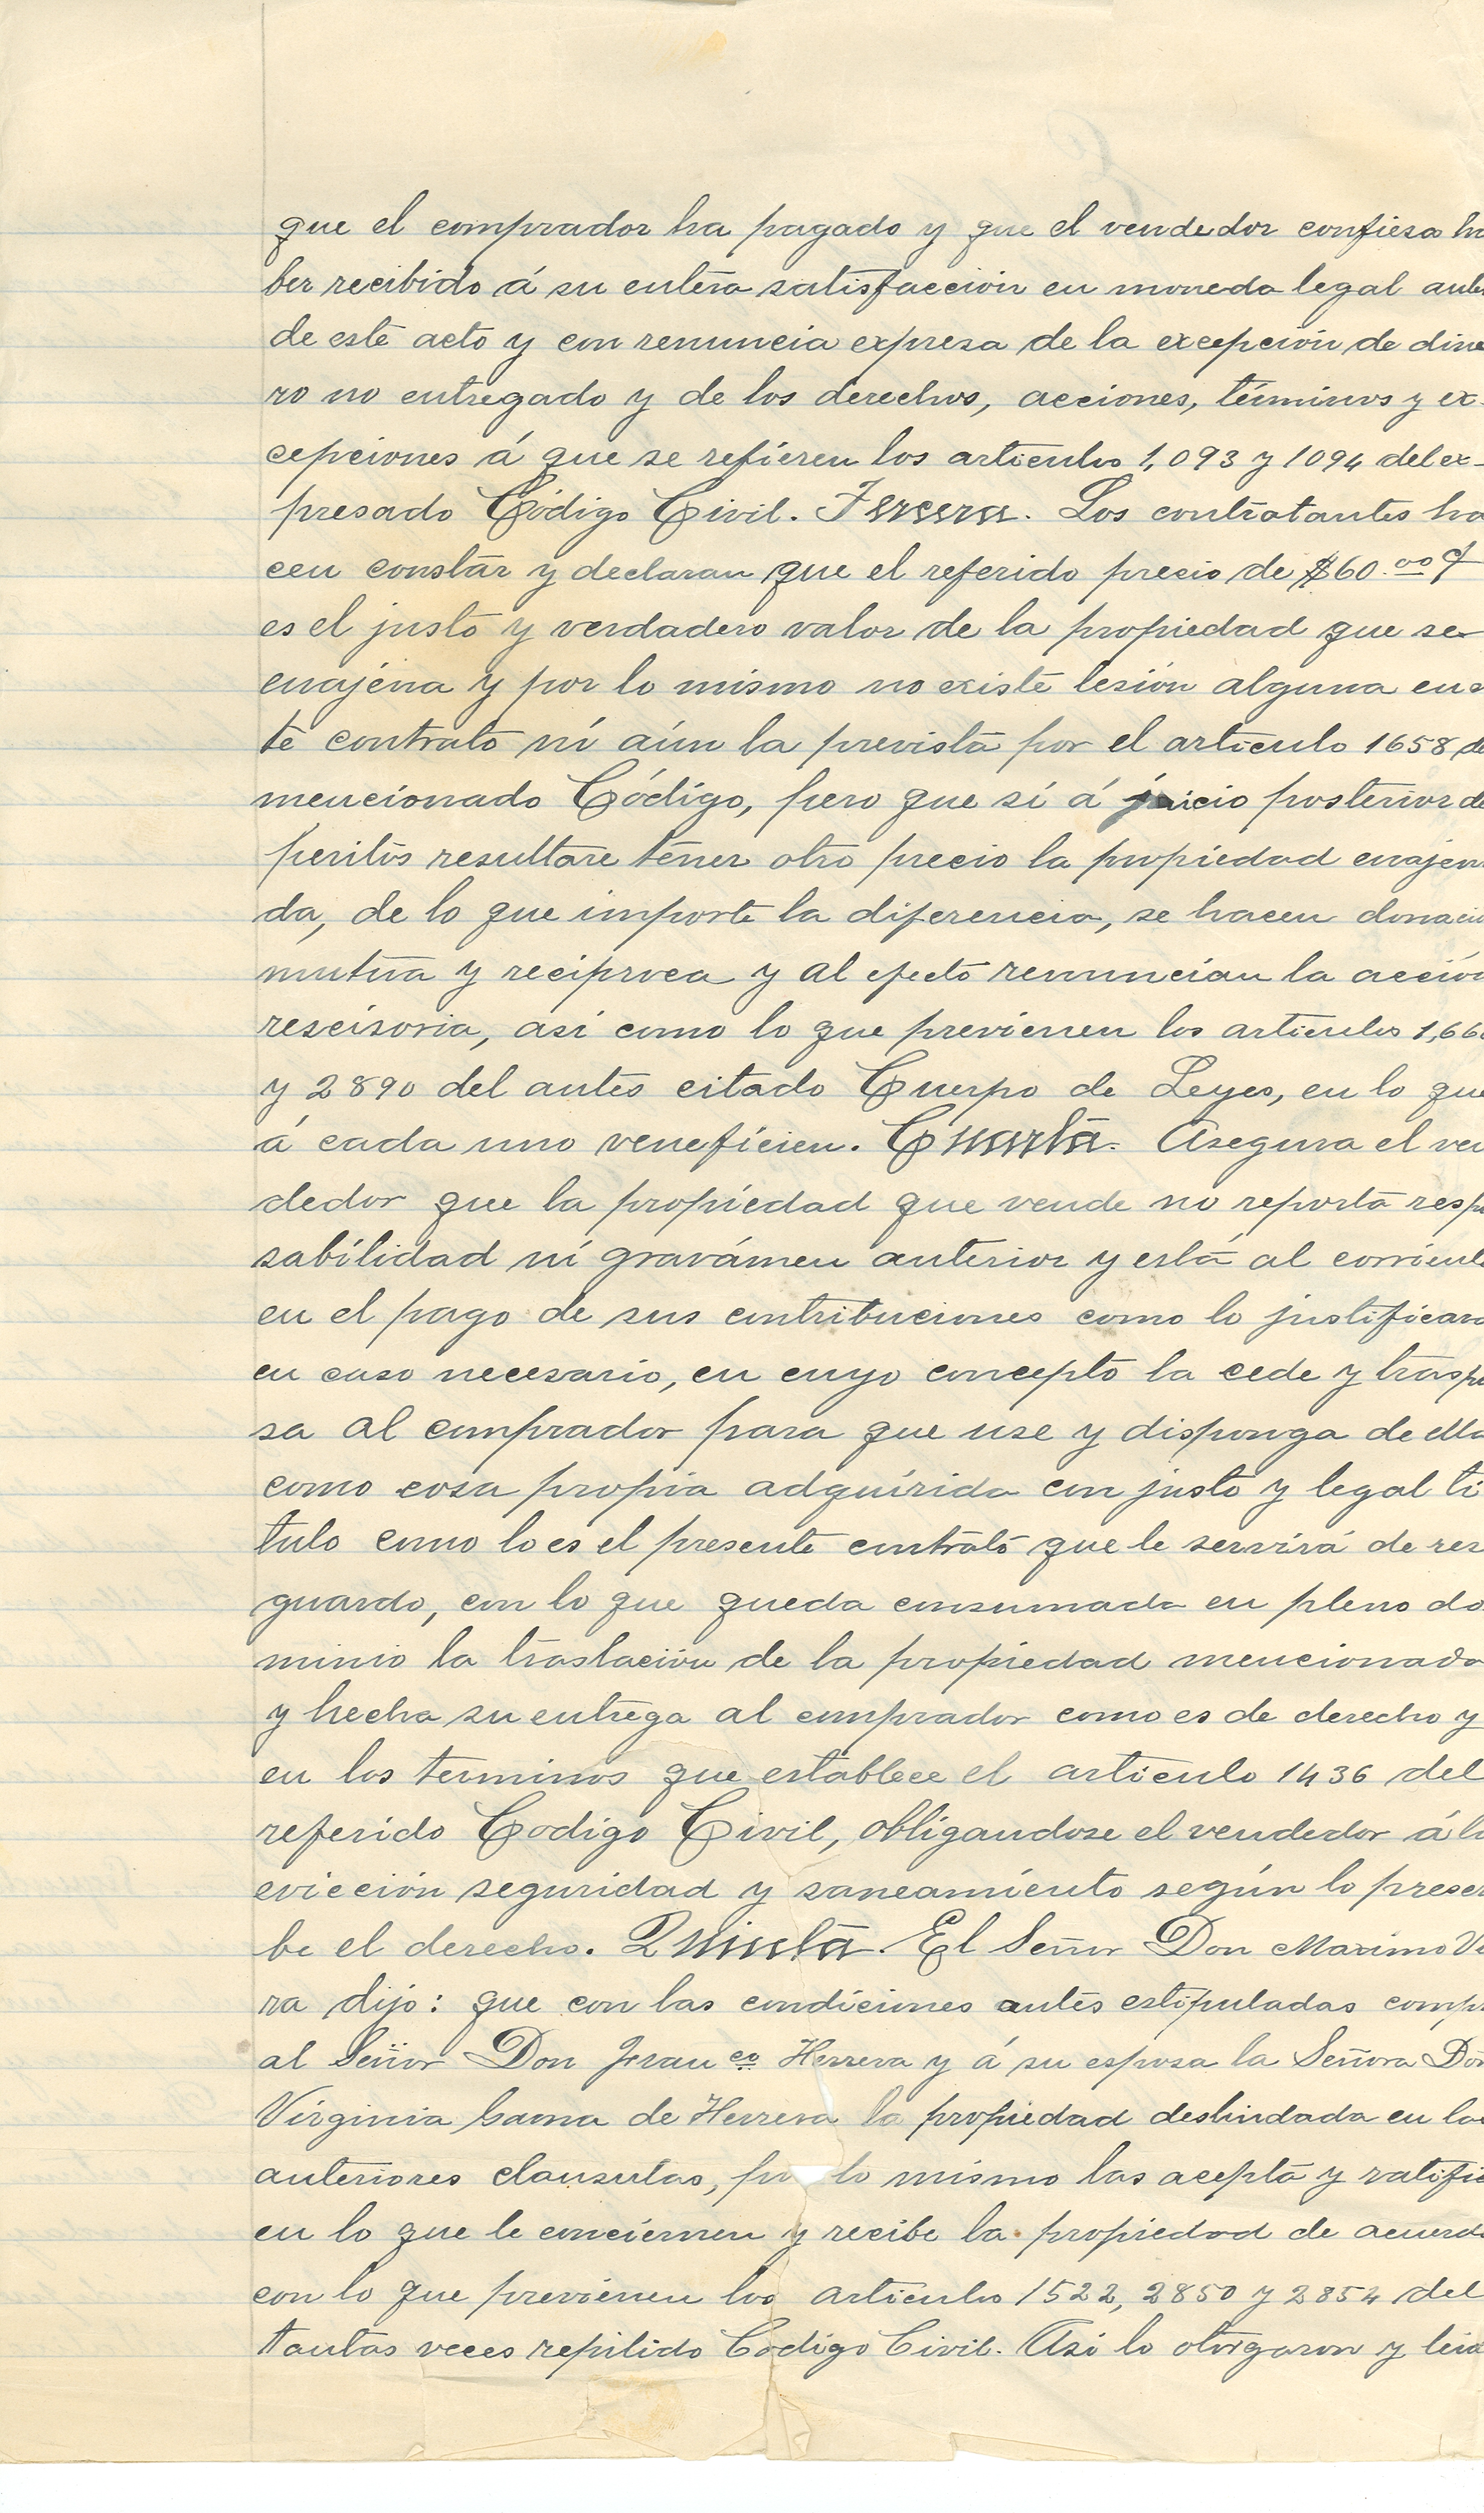 que el comprador ha pagado y que el vendedor confiesa ha
ber recibido á su entera satisfacción en moneda legal antes
de este acto y con renuncia expresa de la excepción de dine
ro no entregado y de los derechos, acciones, términos y ex-
cepciones á que se refieren los articulos 1,093 y 1094 del ex-
presado Código Civil. Tercera. Los contratantes ha
cen constar y declaran que el referido precio de $60.oo
es el justo y verdadero valor de la propiedad que se
enajéna y por lo mismo no existe lesión alguna en es
te contrato ní aún la prevista por el articulo 1658 de
mencionado Código, pero que si á juicio posterior de
peritos resultare téner otro precio la propiedad enajena
da, de lo que importe la diferencia, se hacen donació
mutua y reciproca y al efecto renuncian la acción
rescisoria, asi como lo que previenen los articulos 1,66
y 2890 del antes citado Cuerpo de Leyes, en lo que
á cada uno veneficien. Cuarta. Asegura el ven
dedor que la propiedad que vende no reporta resp
sabilidad ní gravámen anterior y está al corriente
en el pago de sus contribuciones como lo justificara
en caso necesario, en cuyo concepto la cede y traspa
sa al comprador para que use y disponga de ella
como cosa propia adquirida con justo y legal tí
tulo como lo es el presente contrato que le servirá de res
guardo, con lo que queda consumada en pleno do
minio la traslación de la propiedad mencionada
y hecha su entrega al comprador como es de derecho y
en los terminos que establece el articulo 1436 del
referido Codigo Civil, obligandose el vendedor á la
evicción seguridad y saneamiento según lo prescri
be el derecho. Quinta. El Señor Don Maximo Ve
ra dijo: que con las condiciones antes estipuladas compr
al Señor Don Franco Herrera y á su esposa la Señora Doñ
Virginia Gama de Herrera la propiedad deslindada en las
anteriores clausulas, por lo mismo las acepta y ratific
en lo que le conciernen y recibe la propiedad de acuerdo
con lo que previenen los articulos 1522, 2850 y 2854 del
tantas veces repitido Codigo Civil. Asi lo otorgaron y leid